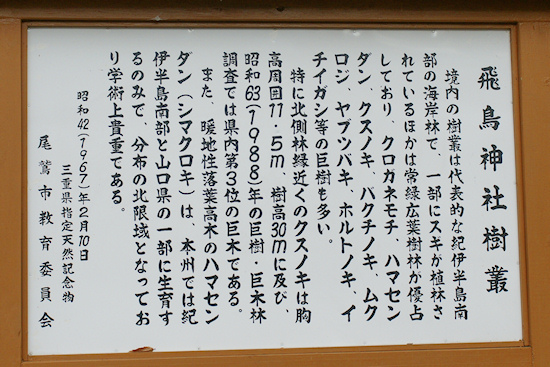 飛鳥神社樹叢
境内の樹叢は代表的な紀伊半島南
部の海岸林で、一部にスギが植林さ
れているほかは常緑広葉樹林が優占
しており、クロガネモチ、ハマセン
ダン、クスノキ、バクチノキ、ムク
ロジ、ヤブツバキ、ホルトノキ、イ
チイガシ等の巨樹も多い。
特に北側林縁近くのクスノキは胸
高周囲11・5m、樹高30mに及び、
昭和63(1988)年の巨樹・巨木林
調査では県内第3位の巨木である。
また、暖地性落葉高木のハマセン
ダン(シマクロキ)は、本州では紀
伊半島南部と山口県の一部に生育す
るのみで、分布の北限域となってお
り学術上貴重である。
昭和42(1967)年2月10日
三重県指定天然記念物
尾鷲市教育委員会